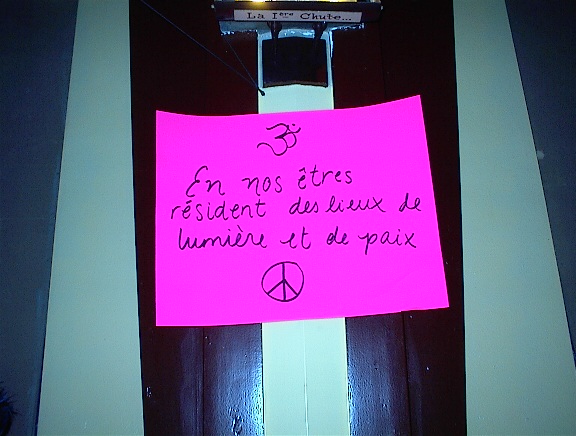 La 1ère Chute...
ॐ
En nos êtres
résident des lieux de
lumière et de paix